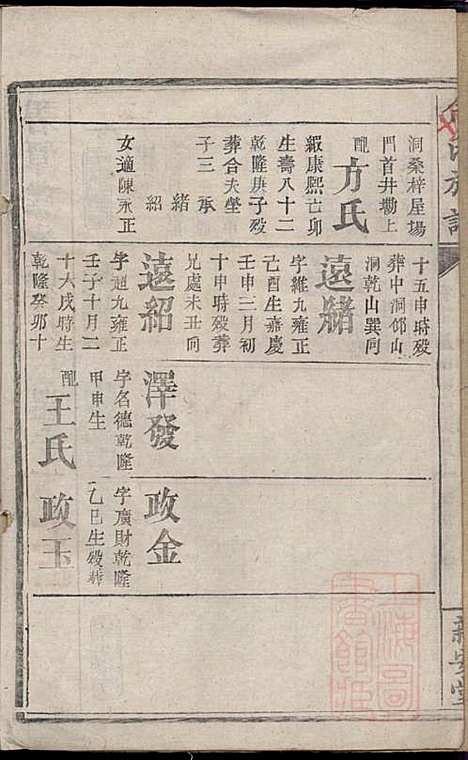 洞桑梓屋場
門首井塝上
配方氏
緞康熙己卯
生壽八十二
乾隆庚子歿
葬合夫塋
子三 承
緒
紹
女適陳永正
十五申時歿
葬中洞邻山
洞乾山巽向
遠緒
字維九雍正
己酉生嘉慶
壬申三月初
十申時歿葬
兄處未丑向
遠紹
字超九雍正
壬子十月二
十六戌時生
乾隆癸卯十
澤發
字名德乾隆
甲申生
配王氏
政金
字廣財乾隆
乙巳生歿葬
政玉
上海圖書館藏